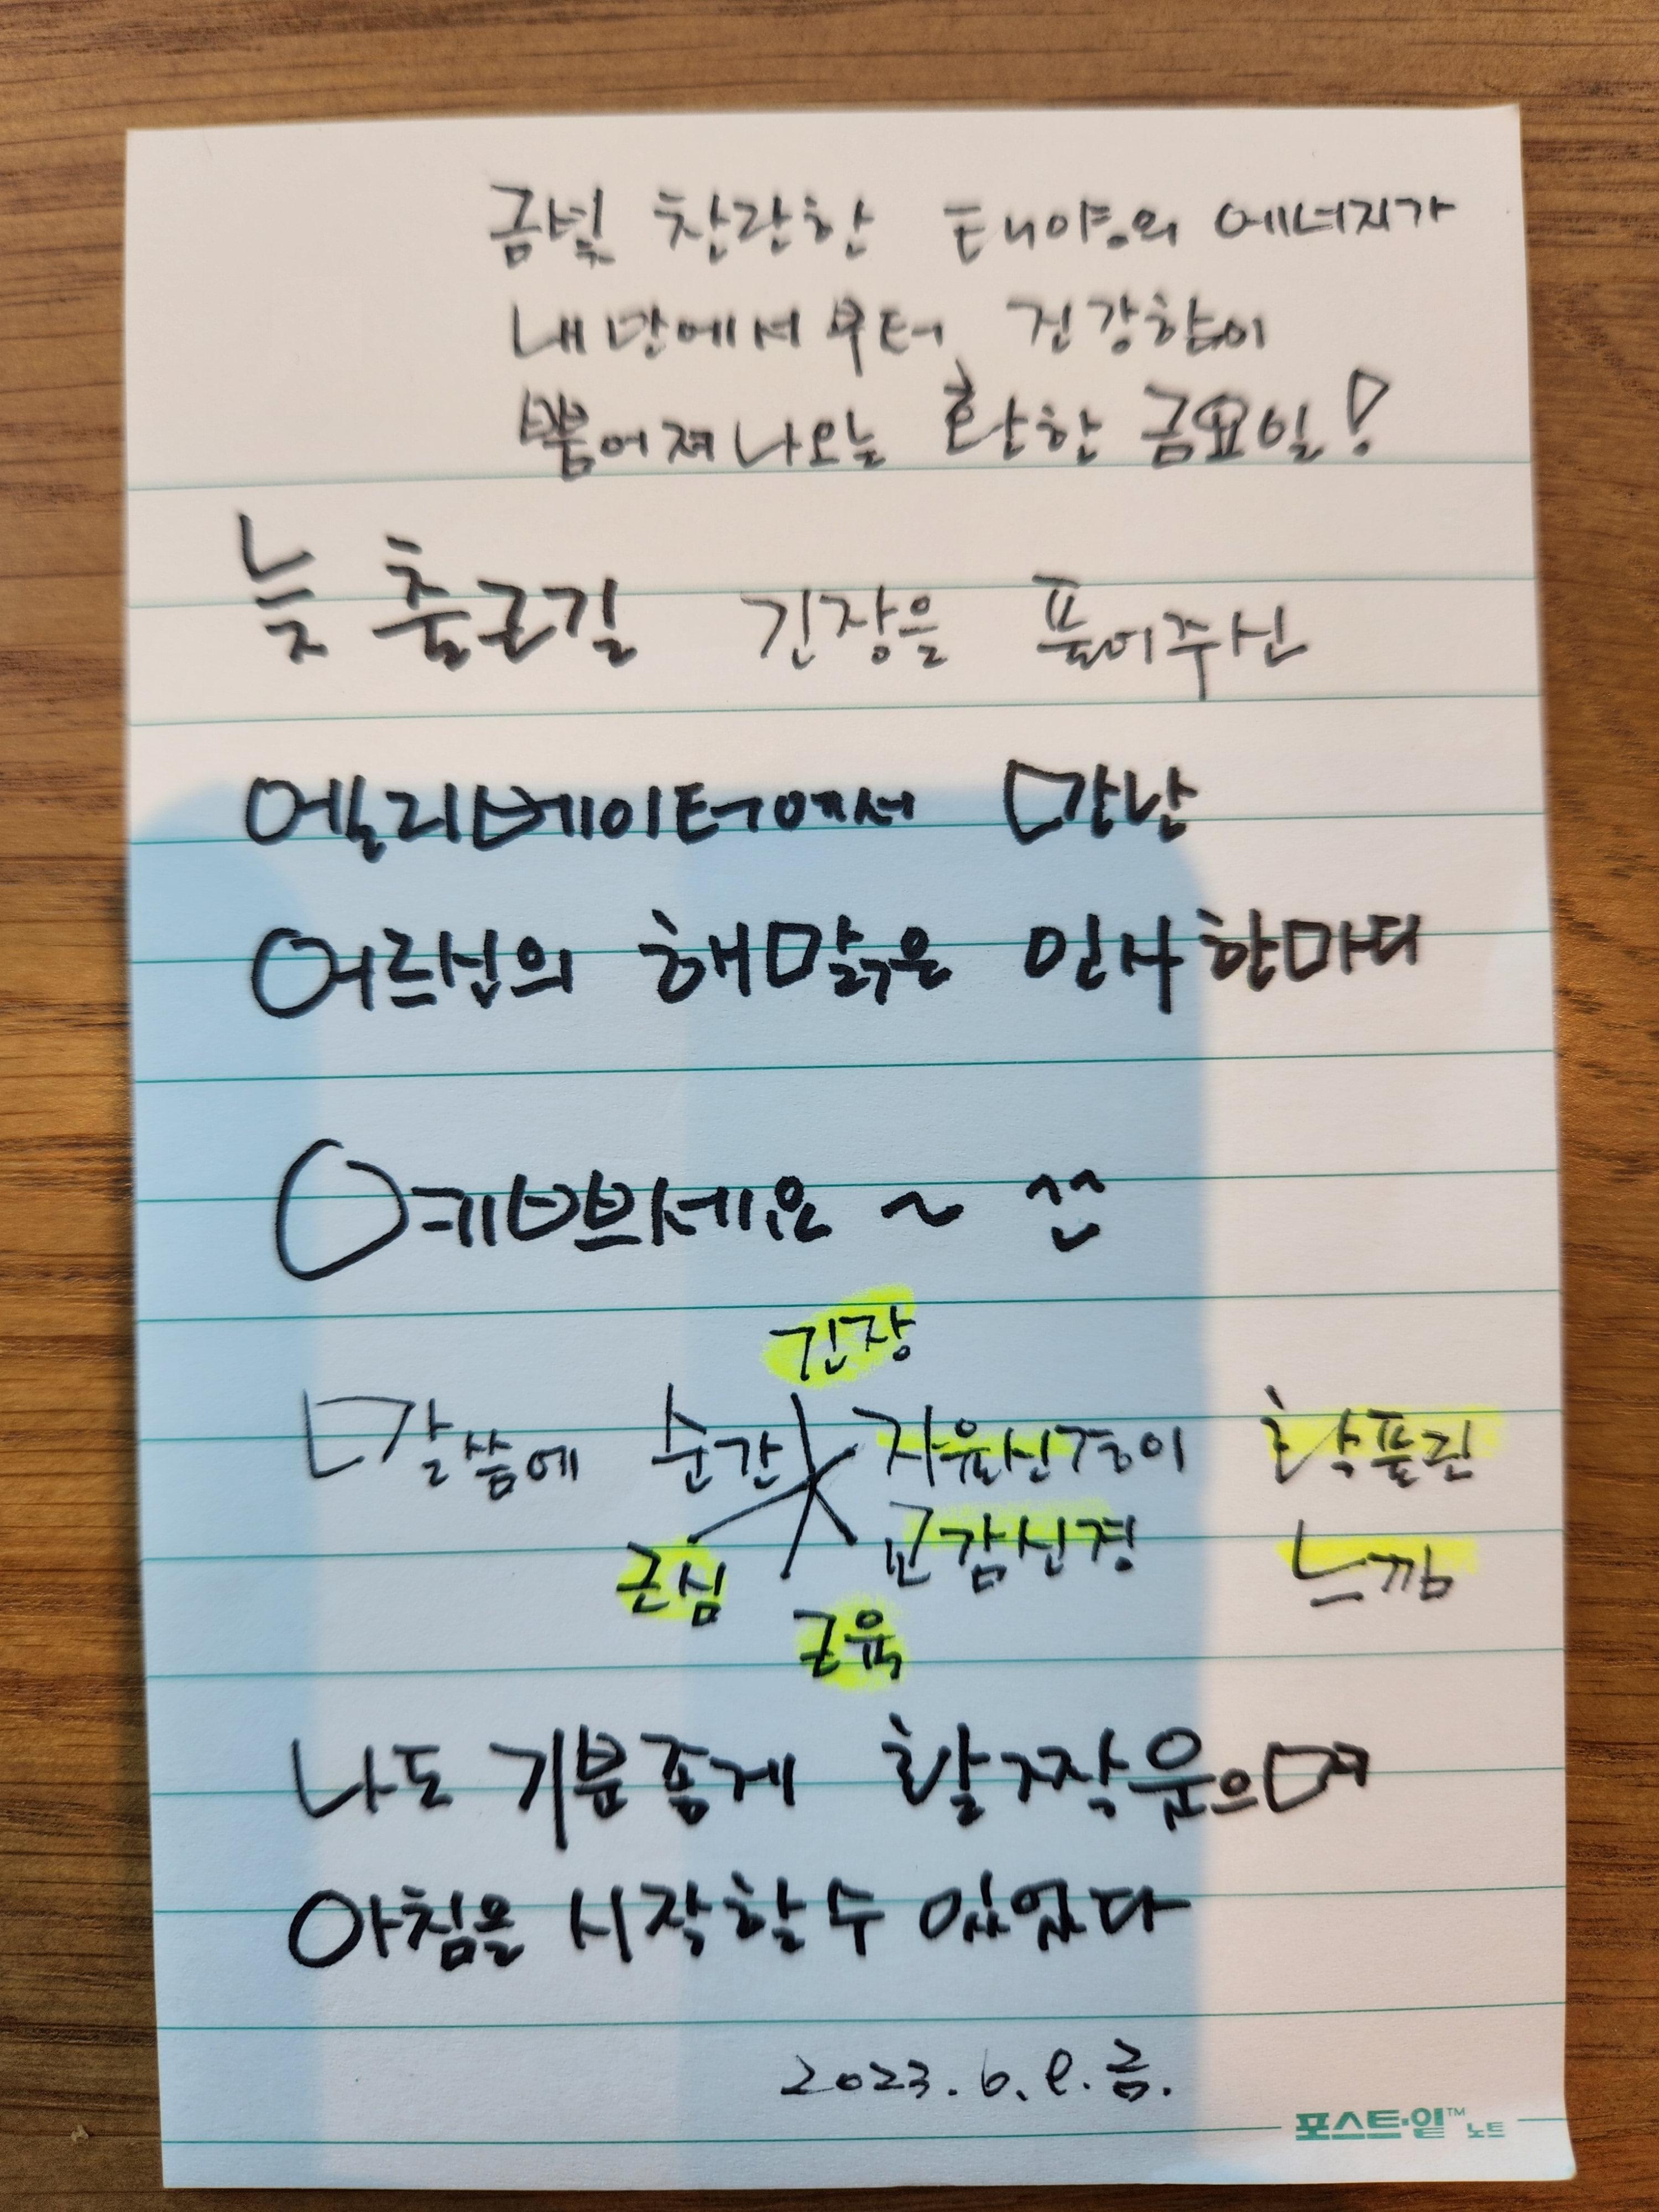 금빛 찬란한 태양의 에너지가
내 안에서부터 건강함이
뿜어져나오는 환한 금요일!
늦 출근길 긴장을 풀어주신
엘리베이터에서 만난
어르신의 해맑은 인사한마디
예쁘세요~ ^^
긴장
말씀에 순간 자율신경이 확풀린
근심 교감신경 느낌
근육
나도 기분좋게 활짝웃으며
아침을 시작할수 있었다
2023. 6. 9. 금.
포스트·잍™ 노트